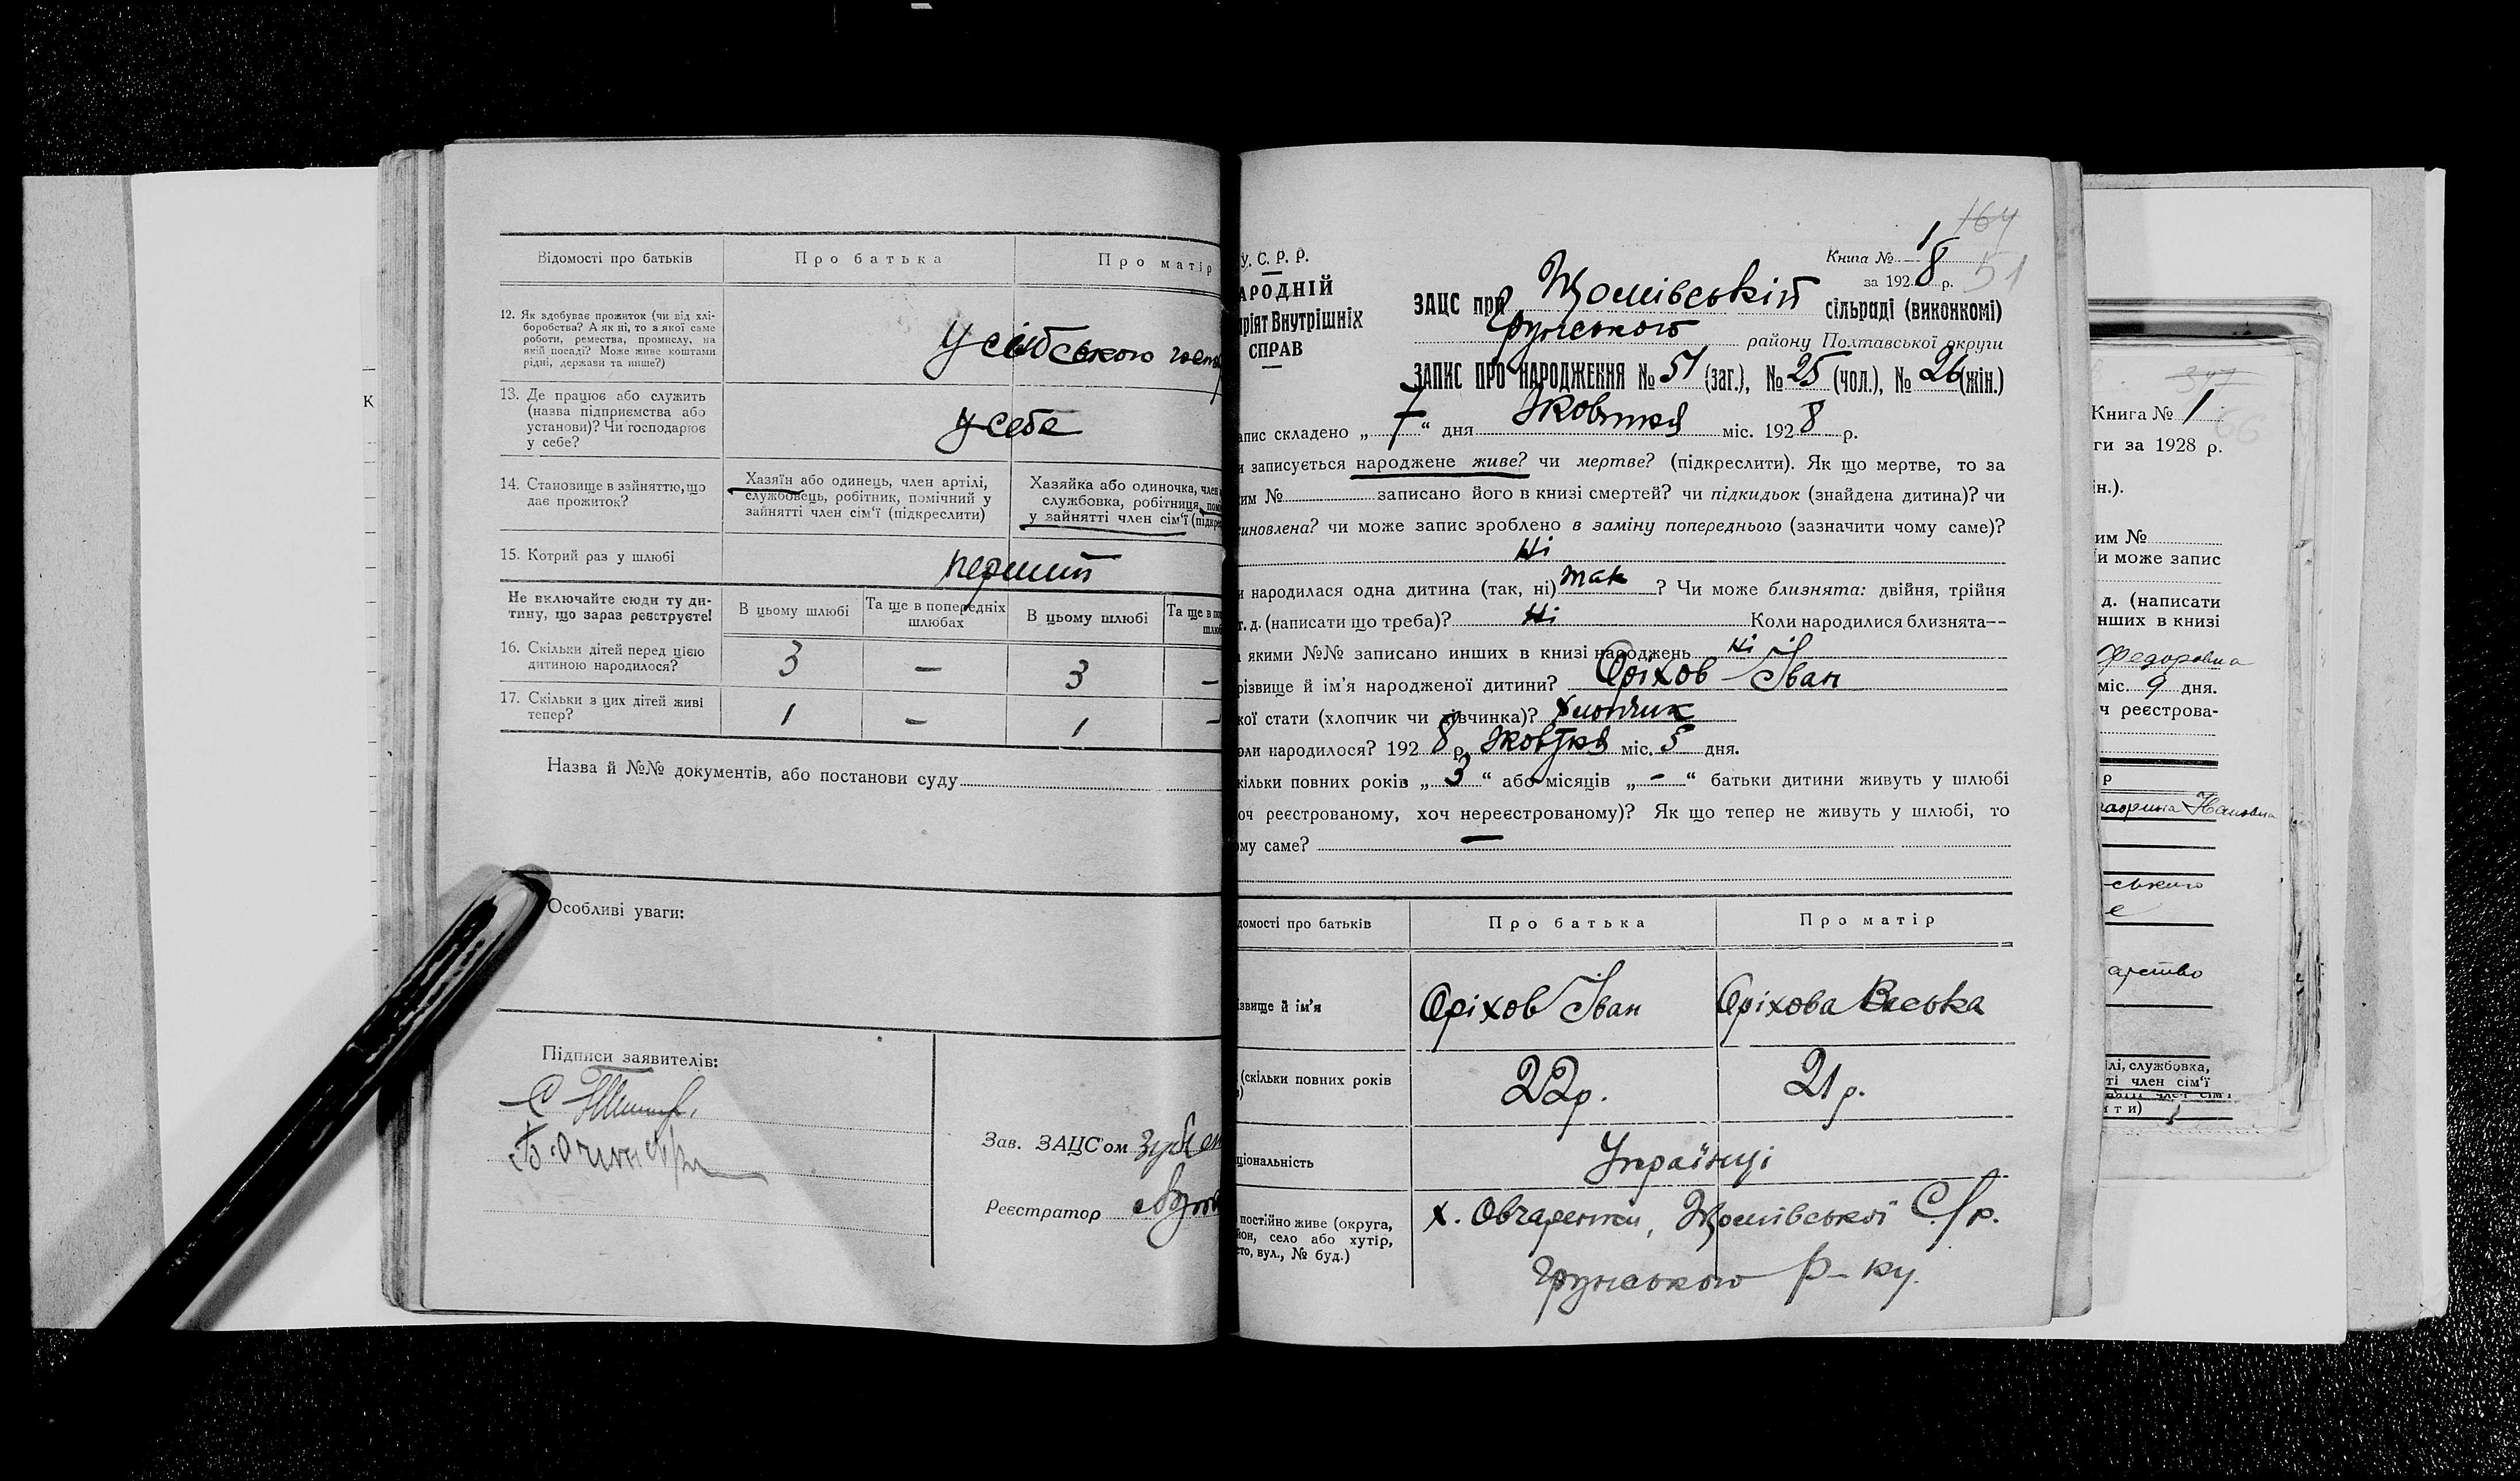 Відомості про батьків
Про батька
Про матір
12. Як здобуває прожиток (чи від хлі-
боробства? А як ні, то з якої саме
роботи, ремества, промислу, на
якій посаді? Може живе коштами
рідні, держави та инше?)
У сільського
13. Де працює або служить
(назва підприємства або
установи)? Чи господарює
у себе?
у себе
14. Становище в зайняттю, що
дає прожиток?
Хазяїн або одинець, член артілі,
службовець, робітник, помічний у
зайнятті член сім'ї (підкреслити)
Хазяйка або одиночка, член
службовка, робітниця, пом
у зайнятті член сім'ї (підкре
15. Котрий раз у шлюбі
перший
Не включайте сюди ту ди-
тину, що зараз реєструєте!
В цьому шлюбі
Та ще в попередніх
шлюбах
В цьому шлюбі
Та ще в по
шлюб
16. Скільки дітей перед цією
дитиною народилося?
3 – 3 –
17. Скільки з цих дітей живі
тепер?
1 – 1 –
Назва й №№ документів, або постанови суду
Особливі уваги:
Підписи заявителів:
Зав. ЗАЦС'ом
Реєстратор
164
51
У. С. Р. Р.
АРОДНІЙ
ріят Внутрішніх
СПРАВ
Книга № 1
за 1928 р.
ЗАЦС при сільраді (виконкомі)
Грунського району Полтавської округи
ЗАПИС ПРО НАРОДЖЕННЯ № 51 (заг.), № 25 (чол.), № 26 (жін.)
апис складено „ 7 “ дня Жовтня міс. 1928 р.
и записується народжене живе? чи мертве? (підкреслити). Як що мертве, то за
ким № записано його в книзі смертей? чи підкидьок (знайдена дитина)? чи
синовлена? чи може запис зроблено в заміну попереднього (зазначити чому саме)?
Ні
и народилася одна дитина (так, ні) так ? Чи може близнята: двійня, трійня
т. д. (написати що треба)? Ні Коли народилися близнята—
якими №№ записано инших в книзі народжень Ні
різвище й ім'я народженої дитини? Оріхов Іван
кої стати (хлопчик чи дівчинка)? Хлопчик
оли народилося? 1928 р. Жовтня міс. 5 дня.
кільки повних років „ 3 “ або місяців „ – “ батьки дитини живуть у шлюбі
оч реєстрованому, хоч нереєстрованому)? Як що тепер не живуть у шлюбі, то
ому саме? –
домості про батьків
Про батька
Про матір
ізвище й ім'я
Оріхов Іван
Оріхова Васька
(скільки повних років
22 р.
21 р.
ціональність
Українці
постійно живе (округа,
йон, село або хутір,
сто, вул., № буд.)
х. Овчаренки, С/р.
Грунського р-ку.
К
347
66
Книга № 1
ги за 1928 р.
ін.).
им №
и може запис
д. (написати
нших в книзі
Федоровна
міс. 9 дня.
ч реєстрова-
р
ського
е
арство
ілі, службовка,
ті член сім'ї
ити)